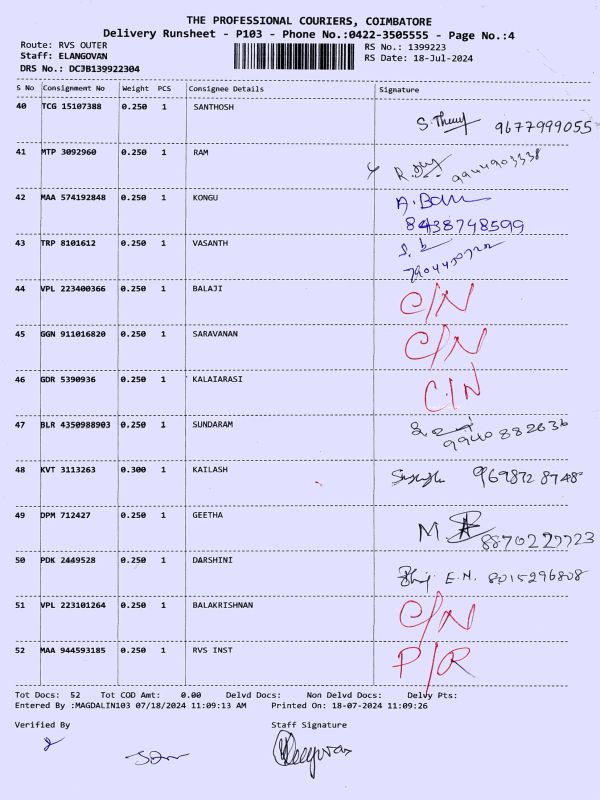 THE PROFESSIONAL COURIERS, COIMBATORE
Delivery Runsheet - P103 - Phone No.:0422-3505555 - Page No.:4
Route: RVS OUTER RS No.: 1399223
Staff: ELANGOVAN RS Date: 18-Jul-2024
DRS No.: DCJB139922304
S No Consignment No Weight PCS Consignee Details Signature
40 TCG 15107388 0.250 1 SANTHOSH 9677999055
41 MTP 3092960 0.250 1 RAM 9944903338
42 MAA 574192848 0.250 1 KONGU
8438748599
43 TRP 8101612 0.250 1 VASANTH
44 VPL 223400366 0.250 1 BALAJI C/N
45 GGN 911016820 0.250 1 SARAVANAN C/N
46 GDR 5390936 0.250 1 KALAIARASI C/N
47 BLR 4350988903 0.250 1 SUNDARAM
9940882636
48 KVT 3113263 0.300 1 KAILASH
49 DPM 712427 0.250 1 GEETHA M
50 PDK 2449528 0.250 1 DARSHINI E.N. 8015296808
51 VPL 223101264 0.250 1 BALAKRISHNAN C/N
52 MAA 944593185 0.250 1 RVS INST P/R
Tot Docs: 52 Tot COD Amt: 0.00 Delvd Docs: Non Delvd Docs: Delvy Pts:
Entered By :MAGDALIN103 07/18/2024 11:09:13 AM Printed On: 18-07-2024 11:09:26
Verified By Staff Signature